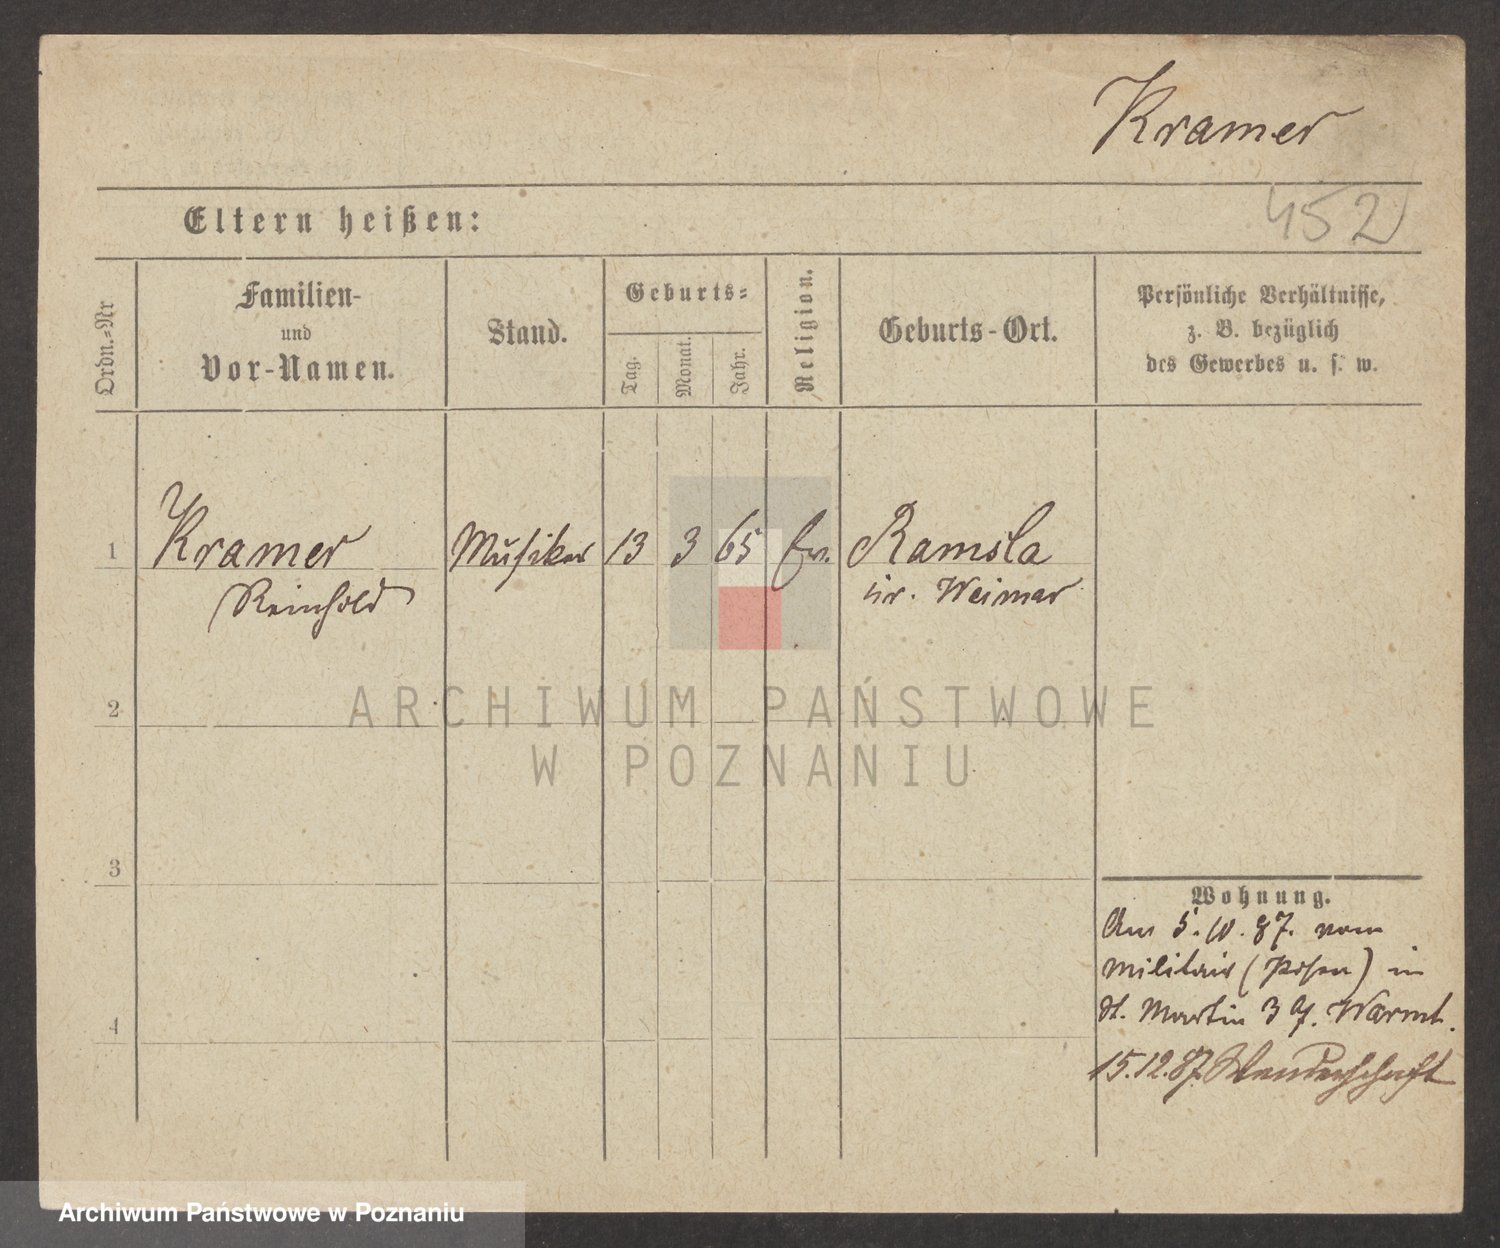 Kramer
452
Eltern heißen:
Ordn.-Nr
Familien-
und
Vor-Namen.
Stand.
Geburts=
Tag.
Monat.
Jahr.
Religion.
Geburts-Ort.
Persönliche Verhältnisse,
z. B. bezüglich
des Gewerbes u. s. w.
1
Kramer
Reinhold
Musiker
13
3
65
Ev.
Ramsla
Kr. Weimar
2
3
4
Wohnung.
Am 5.10.87. vom
Militair (Posen) in
St. Martin 3
15.12.87. Wanderschaft
ARCHIWUM PAŃSTWOWE
W POZNANIU
Archiwum Państwowe w Poznaniu